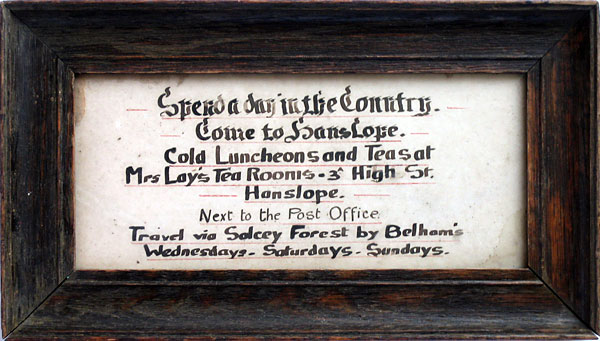 Spend a day in the Country.
Come to Hanslope.
Cold Luncheons and Teas at
Mrs Lay's Tea Rooms - 3 High St.
Hanslope.
Next to the Post Office.
Travel via Salcey Forest by Belham's
Wednesdays - Saturdays - Sundays.